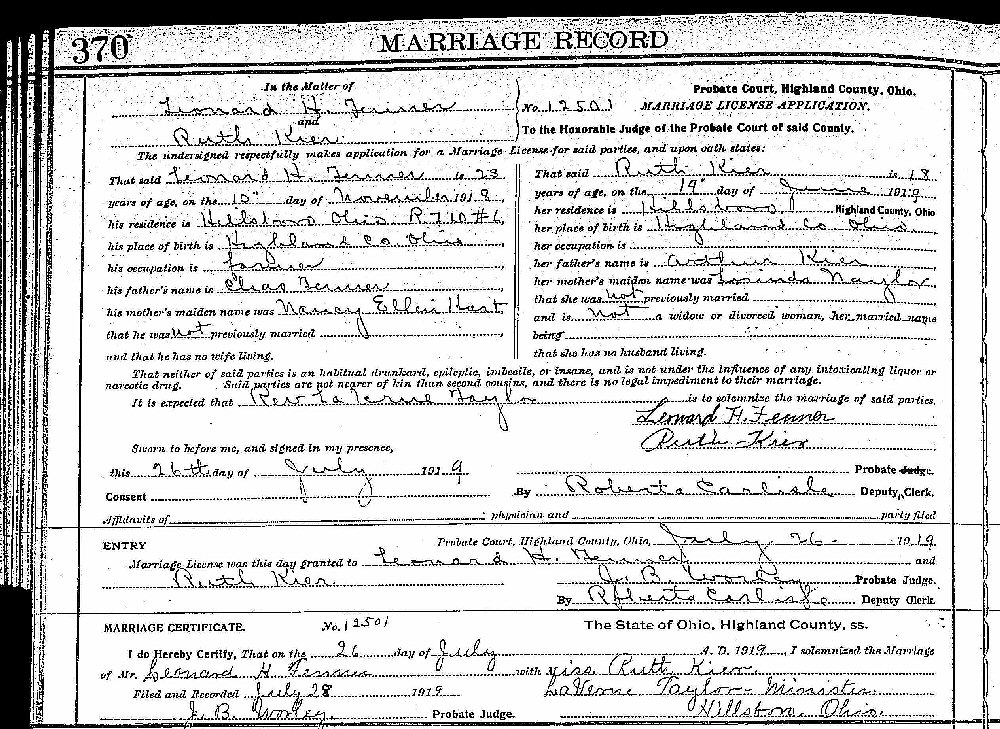 370
MARRIAGE RECORD
In the Matter of
Leonard H. Fenner
and
Ruth Kier
Probate Court, Highland County, Ohio.
No. 12501 MARRIAGE LICENSE APPLICATION.
To the Honorable Judge of the Probate Court of said County.
The undersigned respectfully makes application for a Marriage License for said parties, and upon oath states:
That said Leonard H. Fenner is 23
years of age, on the 10" day of November 1918
his residence is Hillsboro Ohio R.F.D #6
his place of birth is Highland Co Ohio
his occupation is farmer
his father's name is Elias Fenner
his mother's maiden name was Nancy Ellen Hart
that he was not previously married
and that he has no wife living.
That said Ruth Kier is 18
years of age, on the 19" day of June 1919
her residence is Hillsboro, Highland County, Ohio
her place of birth is Highland Co Ohio.
her occupation is
her father's name is Arthur Kier
her mother's maiden name was Lorinda Naylor
that she was not previously married
and is not a widow or divorced woman, her married name
being
that she has no husband living.
That neither of said parties is an habitual drunkard, epileptic, imbecile, or insane, and is not under the influence of any intoxicating liquor or
narcotic drug. Said parties are not nearer of kin than second cousins, and there is no legal impediment to their marriage.
It is expected that Rev La Verne Taylor is to solemnize the marriage of said parties.
Leonard H. Fenner
Ruth Kier
Sworn to before me, and signed in my presence,
this 26th day of July 1919
Probate Judge.
Consent By Roberta Carlisle Deputy Clerk.
Affidavits of physician and party filed
ENTRY Probate Court, Highland County, Ohio, July 26 1919
Marriage License was this day granted to Leonard H. Fenner and
Ruth Kier J. B. Worley Probate Judge.
By Roberta Carlisle Deputy Clerk.
MARRIAGE CERTIFICATE. No. 12501 The State of Ohio, Highland County, ss.
I do Hereby Certify, That on the 26 day of July A. D. 1919, I solemnized the Marriage
of Mr. Leonard H. Fenner with Miss Ruth Kier
Filed and Recorded July 28 1919 LaVerne Taylor - Minister
J. B. Worley. Probate Judge. Hillsboro. Ohio.